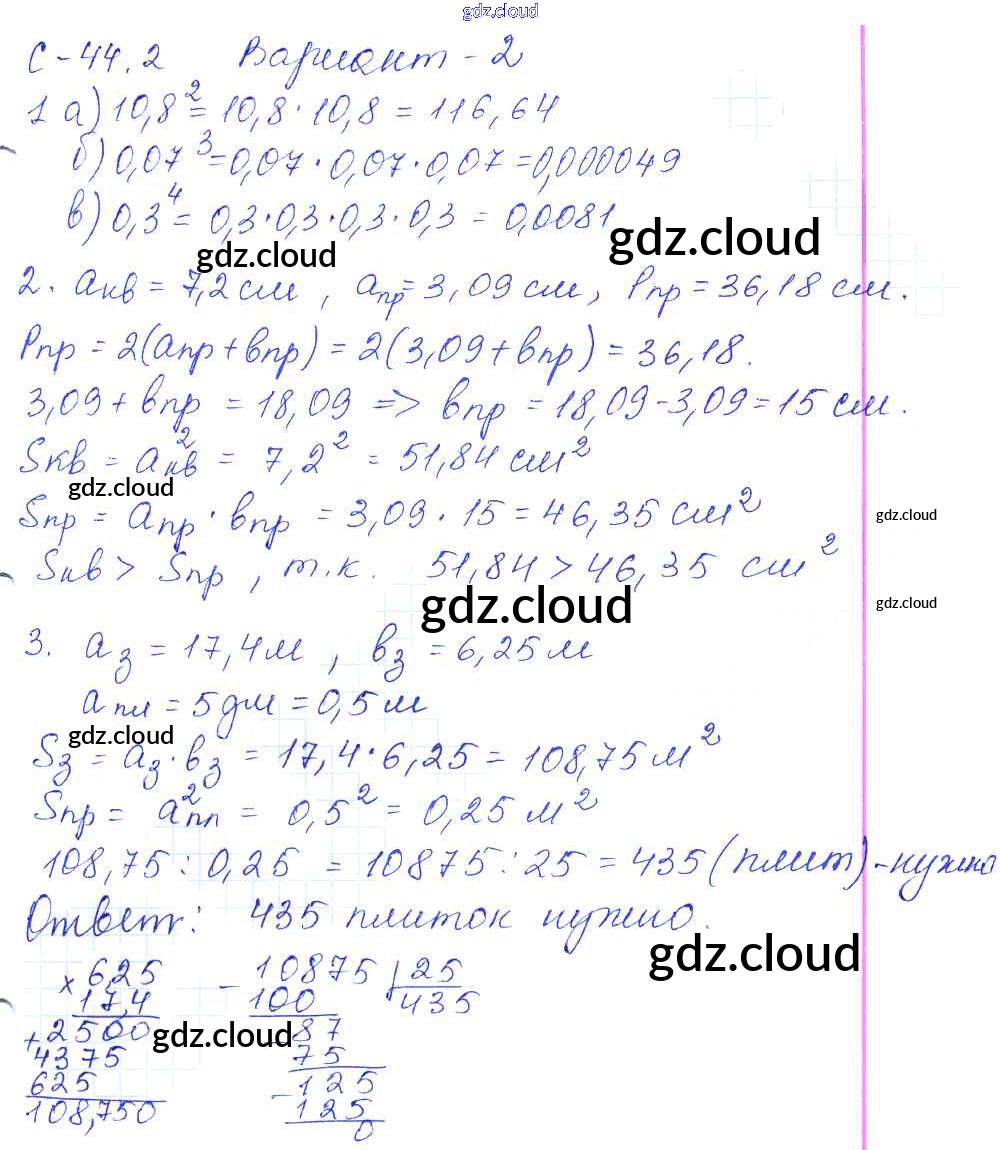 gdz.cloud
С-44.2 Вариант-2
1 а) 10,8² = 10,8·10,8 = 116,64
б) 0,07³=0,07·0,07·0,07=0,000049
в) 0,3⁴= 0,3·0,3·0,3·0,3 = 0,0081
gdz.cloud
gdz.cloud
2. aкв = 7,2 см, aпр=3,09 см, Pпр = 36,18 см.
Pпр = 2(aпр+bпр) = 2(3,09+bпр) = 36,18.
3,09 + bпр = 18,09 => bпр = 18,09-3,09=15 см.
Sкв = a²кв = 7,2² = 51,84 см²
gdz.cloud
Sпр = aпр·bпр = 3,09·15 = 46,35 см²
gdz.cloud
Sкв > Sпр, т.к. 51,84 > 46,35 см²
gdz.cloud
gdz.cloud
3. aз = 17,4м, bз = 6,25 м
aпл = 5 дм = 0,5 м
gdz.cloud
Sз = aз·bз = 17,4·6,25 = 108,75 м²
Sпр = a²пл = 0,5² = 0,25 м²
108,75 : 0,25 = 10875 : 25 = 435 (плит) - нужно
Ответ: 435 плиток нужно.
gdz.cloud
× 6,25 - 10875 | 25
17,4 100 435
+ 2500 - 87
gdz.cloud
4375 75
625 - 125
108,750 125
0